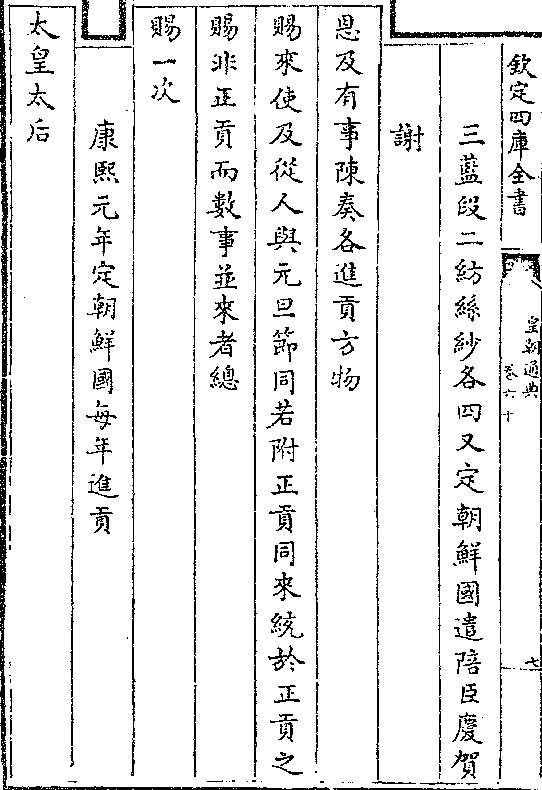 欽定四庫全書
皇朝通典
卷六十
七
三藍段二紡絲紗各四又定朝鮮國遣陪臣慶賀
謝
恩及有事陳奏各進貢方物
賜來使及從人與元旦節同若附正貢同來統於正貢之
賜非正貢而數事並來者總
賜一次
康熙元年定朝鮮國每年進貢
太皇太后